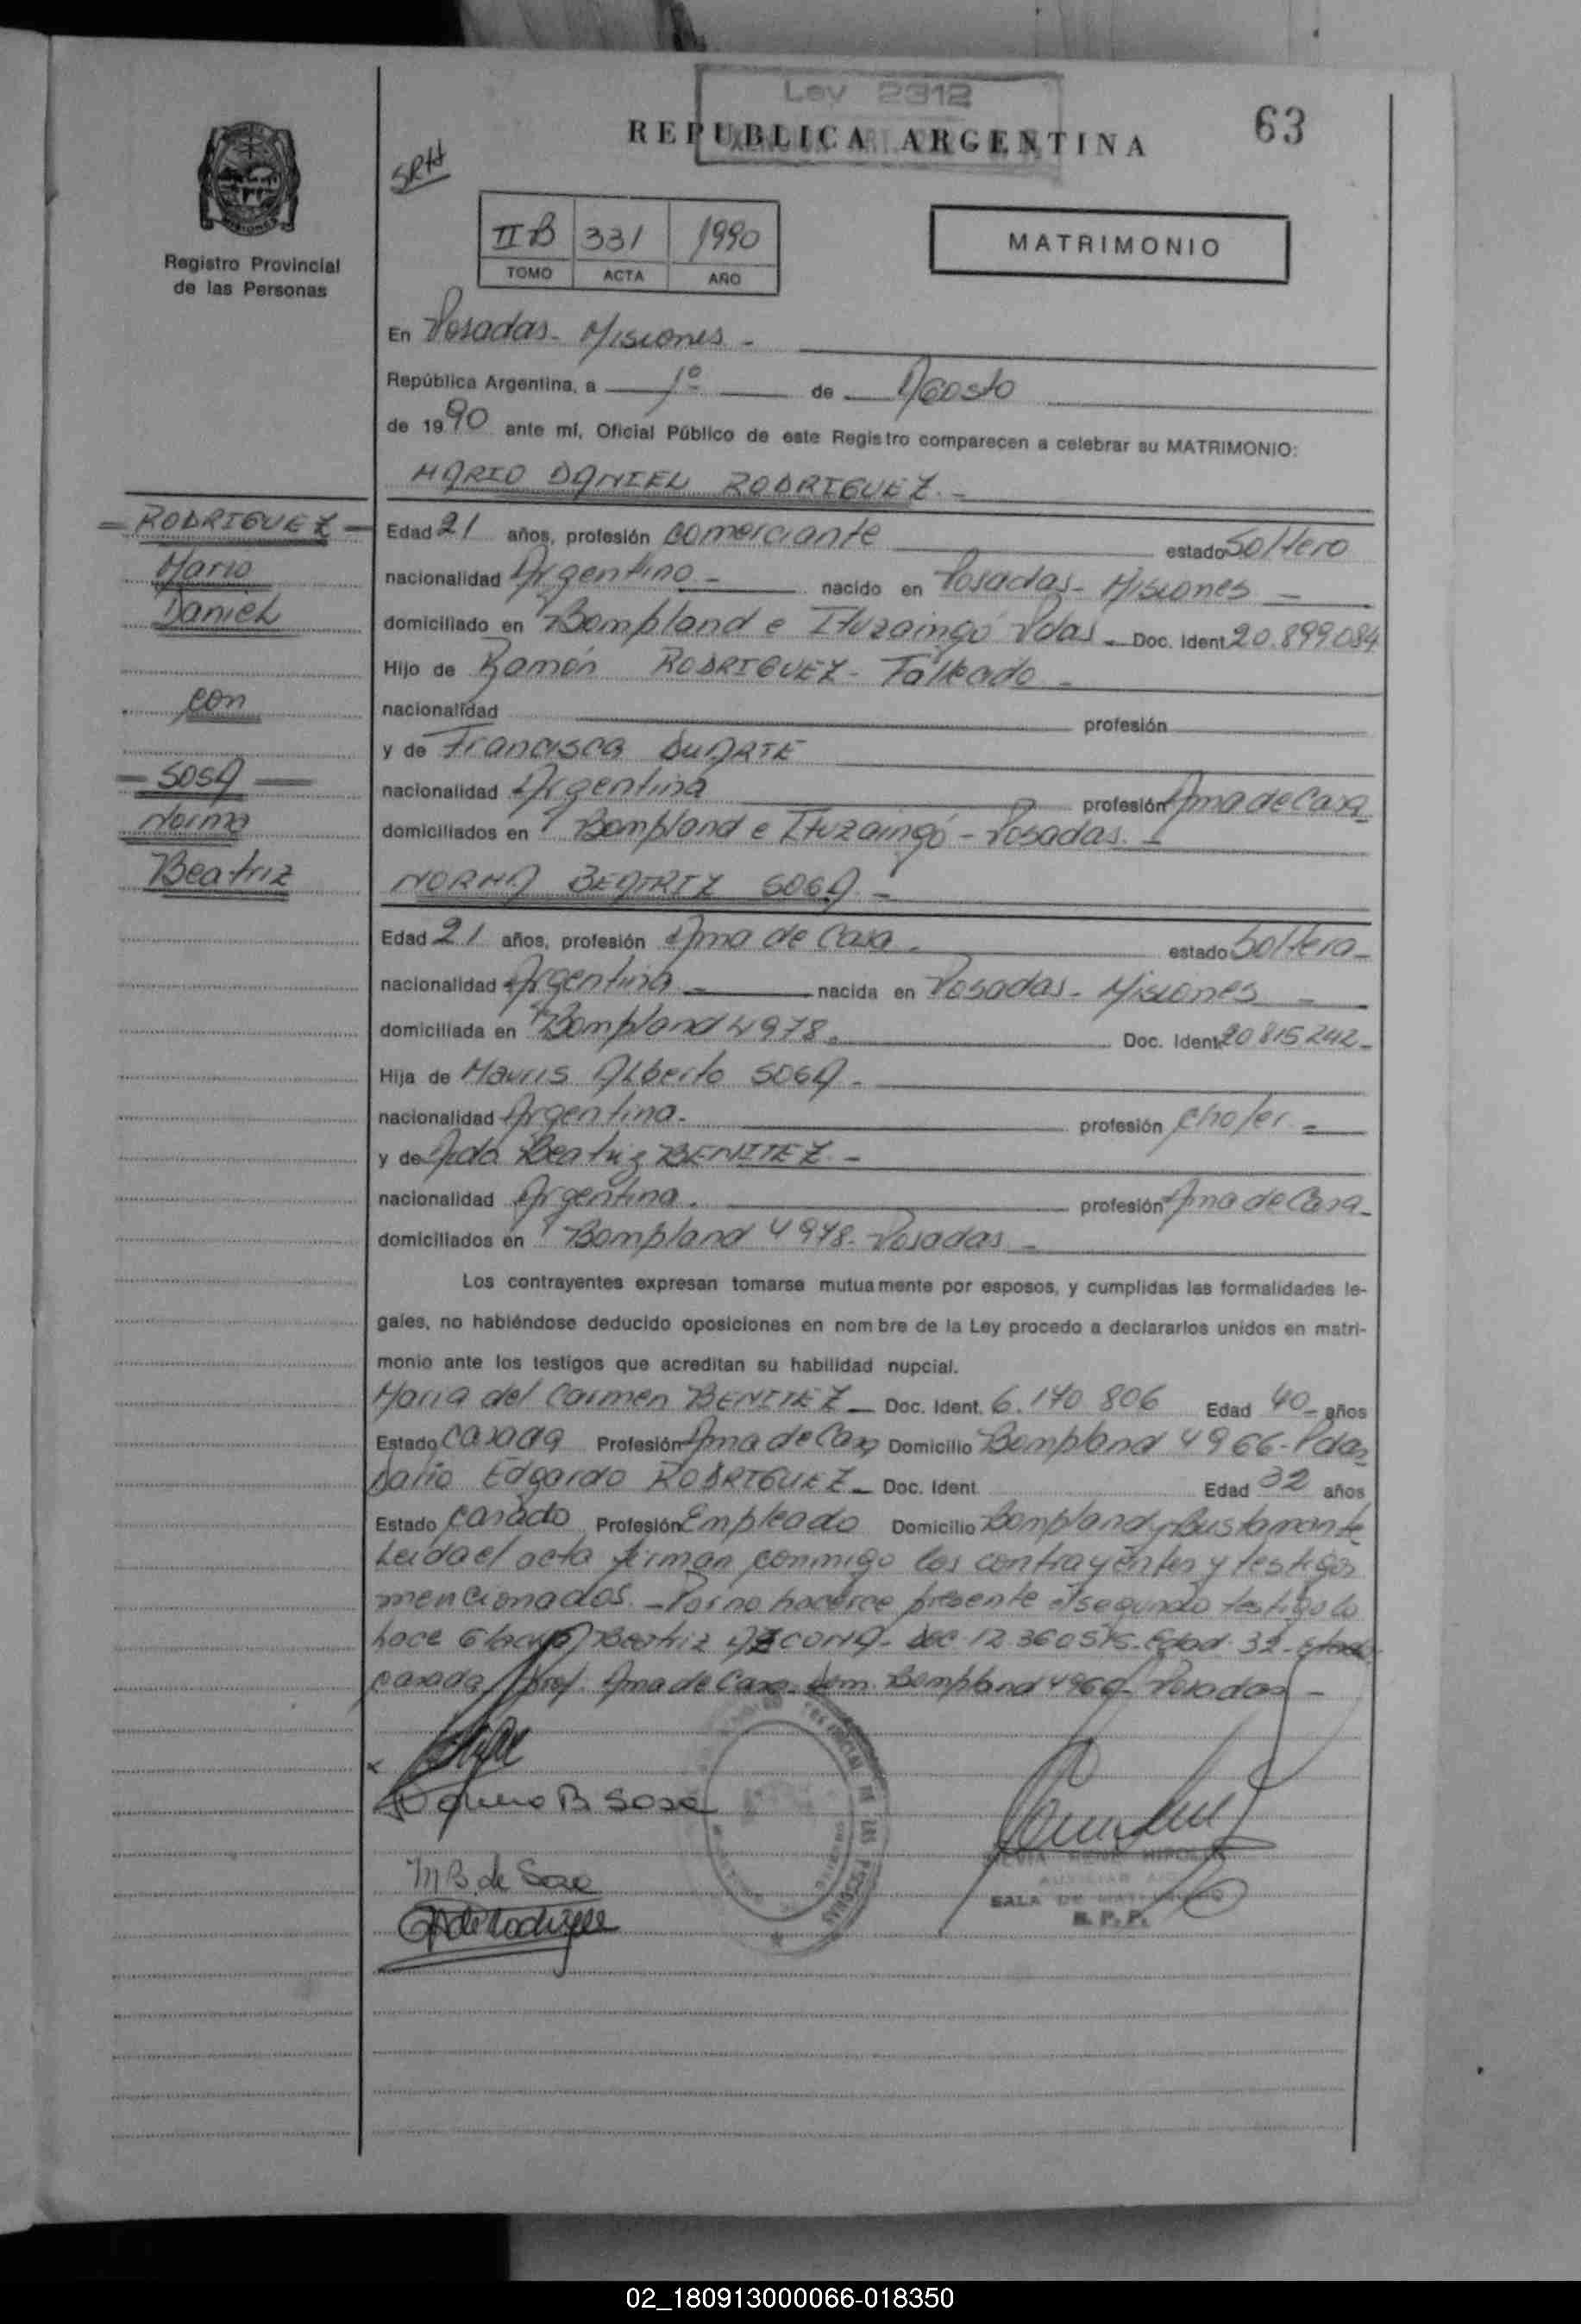 Ley 2312
REPUBLICA ARGENTINA
63
SRH
II B 331 1990
TOMO ACTA AÑO
MATRIMONIO
Registro Provincial
de las Personas
En Posadas - Misiones -
República Argentina, a 1º de Agosto
de 1990 ante mí, Oficial Público de este Registro comparecen a celebrar su MATRIMONIO:
MARIO DANIEL RODRIGUEZ. -
= RODRIGUEZ =
Mario
Daniel
con
= SOSA =
Norma
Beatriz
Edad 21 años, profesión comerciante estado Soltero
nacionalidad Argentino - nacido en Posadas - Misiones -
domiciliado en Bompland e Ituzaingó Pdas - Doc. Ident 20.899.084
Hijo de Ramón RODRIGUEZ - Falleado -
nacionalidad profesión
y de Francisca DUARTE
nacionalidad Argentina profesión Ama de Casa
domiciliados en Bompland e Ituzaingó - Posadas. -
NORMA BEATRIZ SOSA -
Edad 21 años, profesión Ama de Casa - estado Soltera -
nacionalidad Argentina - nacida en Posadas - Misiones -
domiciliada en Bompland 4978. Doc. Ident 20 815 242 -
Hija de Mauris Alberto SOSA -
nacionalidad Argentina - profesión chofer -
y de Ada Beatriz BENITEZ. -
nacionalidad Argentina. profesión Ama de Casa -
domiciliados en Bompland 4978 - Posadas -
Los contrayentes expresan tomarse mutuamente por esposos, y cumplidas las formalidades le-
gales, no habiéndose deducido oposiciones en nombre de la Ley procedo a declararlos unidos en matri-
monio ante los testigos que acreditan su habilidad nupcial.
Maria del Carmen BENITEZ - Doc. Ident. 6.170 806 Edad 40 - años
Estado Casada Profesión Ama de Casa Domicilio Bompland 4966 - Pdas
Dario Edgardo RODRIGUEZ - Doc. Ident Edad 32 años
Estado Casado Profesión Empleado Domicilio Bompland y Bustamante
Leida el acta firman conmigo los contrayentes y testigos
mencionados. - Por no hacerce presente el segundo testigo lo
hace Gladys Beatriz AZCONA - Doc. 12 360 575 - Edad 32 - Estado
casada, Prof. Ama de Casa - Dom. Bompland 4960 - Posadas -
Norma B Sosa
M B. de Sosa
A de Rodriguez
SALA DE MATRIMONIO
R. P. P.
02_180913000066-018350